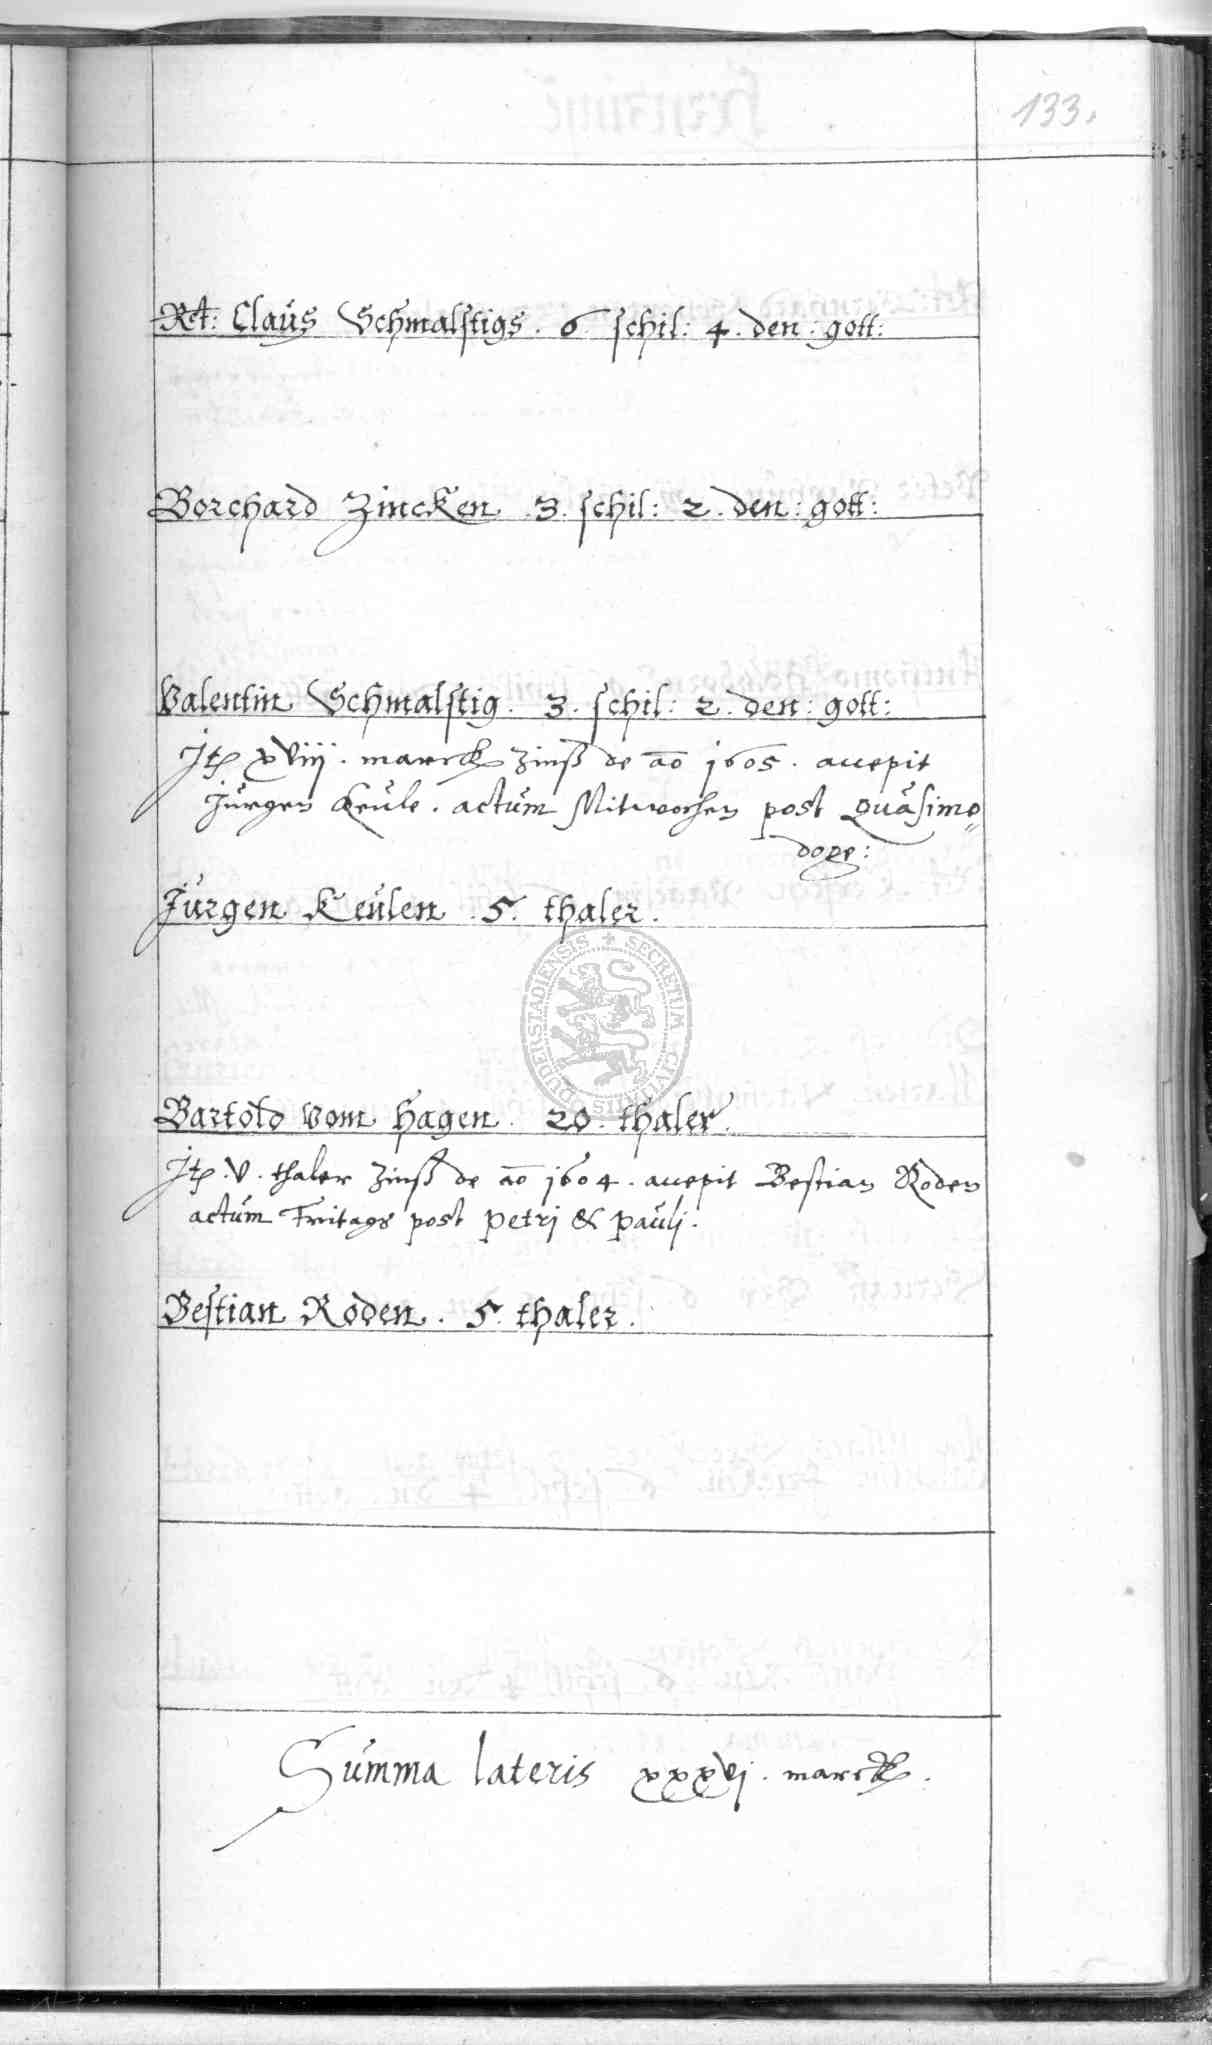 133.
Rt: Claus Schmalstigs . 6 schil: 4 . den : gott:
Borchard Zincken . 3 . schil: 2 . den : gott:
Valentin Schmalstig . 3 . schil: 2 . den : gott:
Jt xviij . marck Zinß de ao 1605 . accepit
Jürgen Keule . actum Mitwochen post Quasimo„
doge:
Jürgen Keulen . 5 . thaler .
Bartold vom Hagen . 20 . thaler .
Jt . v . thaler Zinß de ao 1604 . accepit Bestian Roden
actum Freitags post Petri & Pauli .
Bestian Roden . 5 . thaler .
Summa lateris xxxvj . marck .
SECRETUM CIVITATIS DUDERSTADIENSIS